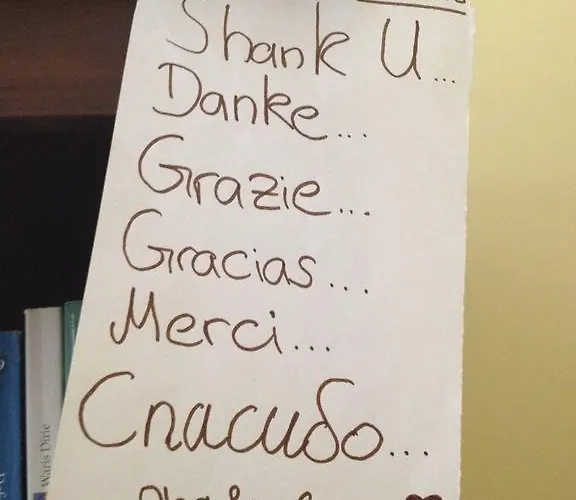 Shank U...
Danke...
Grazie...
Gracias...
Merci...
Спасибо...
Waris Dirie